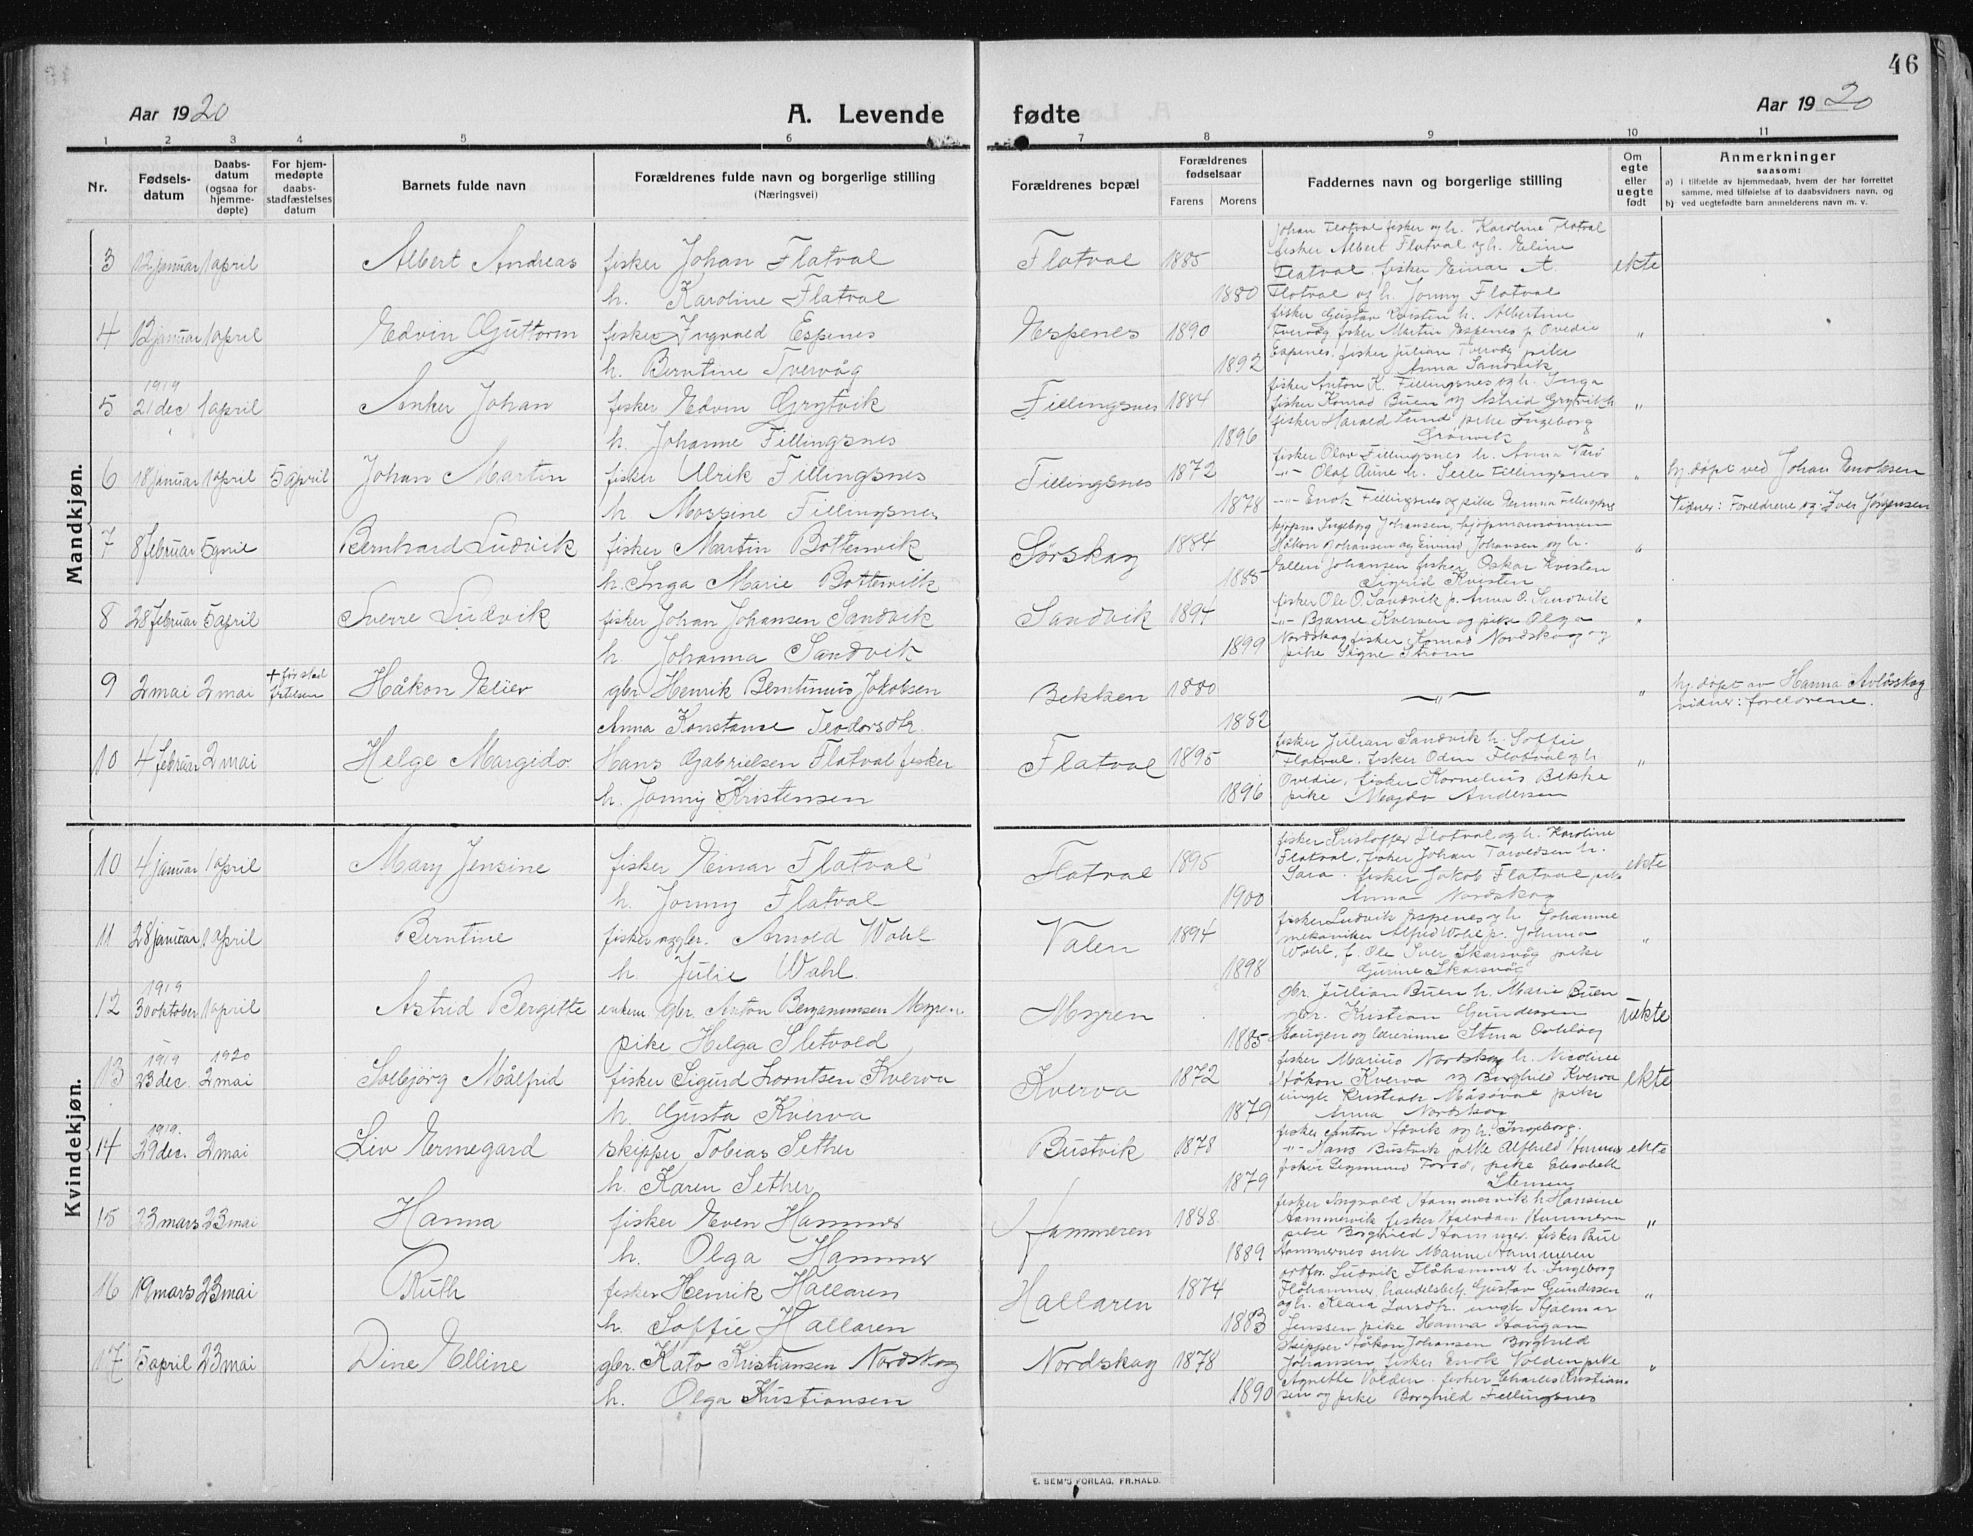 46
Aar 1920
A. Levende fødte
Aar 1920
1 2 3 4 5 6 7 8 9 10 11
Nr.
Fødselsdatum
Daabsdatum (ogsaa for hjemmedøpte)
For hjemmedøpte daabsstadfæstelses datum
Barnets fulde navn
Forældrenes fulde navn og borgerlige stilling (Næringsvei)
Forældrenes bopæl
Forældrenes fødselsaar
Farens Morens
Faddernes navn og borgerlige stilling
Om egte eller uegte født
Anmerkninger
saasom:
a) i tilfælde av hjemmedaab, hvem der har forrettet samme, med tilføielse af to daabsvidners navn, og
b) ved uegtefødte barn anmelderens navn m. v.
Mandkjøn.
3 12 januar 1 april Albert Andreas fisker Johan Flatval Flatval 1885 ekte
h. Karoline Flatval 1880
Johan Flatval fisker og h. Karoline Flatval
fisker Albert Flatval og h. Eline
Flatval, fisker Einar A.
Flatval og h. Jonny Flatval
4 12 januar 1 april Edvin Guttorm fisker Ingvald Espenes Espenes 1890 "
h. Berntine Tvervåg 1892
h. Albertine
Tvervåg fisker Martin Espenes p. Ovedie
Espenes, fisker Julian Tvervåg pike
Anna Sandvik
1919
5 21 dec 1 april Anker Johan fisker Edvin Grytvik Fillingsnes 1884 "
h. Johanne Fillingsnes 1896
fisker Anton K. Fillingsnes og h. Inga
fisker Konrad Buen og Astrid Grytvik
fisker Harald Lund pike Ingeborg
Grønvik
6 18 januar 1 april 5 april Johan Martin fisker Ulrik Fillingsnes Fillingsnes 1872 "
h Massine Fillingsnes 1878
fisker Olav Fillingsnes h. Anna
-"- Olaf Aune h. Fillingsnes
-"- Enok Fillingsnes og pike Emma Fillingsnes
hj. døpt ved Johan Enoksen
Vidner: Foreldrene og Iver Jørgensen
7 8 februar 5 april Bernhard Ludvik fisker Martin Bottenvik Sørskag 1884 "
h. Inga Marie Bottenvik 1885
Ingeborg Johansen, kjøpmannsønnen
Håkon Johansen og Eivind Johansen, og h.
Johansen fisker Oskar Kvisten
Sigrid Kvisten
8 28 februar 5 april Sverre Ludvik fisker Johan Johansen Sandvik Sandvik 1894 "
h Johanna Sandvik 1899
fisker Ole O. Sandvik p. Anna O. Sandvik
-"- Bjarne Kverven og pike Olga
Nordskag fisker Nordskag og
pike Signe Strøm
9 2 mai 2 mai + før stadfestelsen Håkon Eliev gbr. Henrik Berntinus Jakobsen Bekken 1880 —"— "
Anna Konstanse Teodorsdtr. 1882
hj. døpt av Hanna Avløsskag
vidner: foreldrene.
10 4 februar 2 mai Helge Margido Hans Gabrielsen Flatval fisker Flatval 1895 "
h. Jonny Kristensen 1896
fisker Julian Sandvik h. Soffie
Flatval, fisker Odin Flatval og h
Ovedie, fisker Kornelius Bekke
pike Magda Andersen
Kvindekjøn.
10 4 januar 1 april Mary Jensine fisker Einar Flatval Flatval 1895 ekte
h. Jonny Flatval 1900
fisker Kristoffer Flatval og h. Karoline
Flatval, fisker Johan h.
Sara. fisker Jakob Flatval pike
Anna Nordskag
11 28 januar 1 april Berntine fisker og gbr. Arnold Wahl Valen 1894 "
h Julie Wahl. 1898
fisker Ludvik Espenes og h. Johanne
mekaniker Alfred Wahl p. Johanna
Wahl. f. Ole Iver Skarsvåg pike
Gurine Skarsvåg
1919
12 30 oktober 1 april Astrid Bergitte enkem. gbr. Anton Benjaminsen Myren Myren uekte
pike Helga Sletvold 1885
gbr. Jullian Buen h. Marie Buen
gbr. Kristian Gundersen
Haugen og lærerinne Stina
1919 1920
13 23 dec. 2 mai Solbjørg Målfrid fisker Sigurd Lorntsen Kverva Kverva 1872 ekte
h. Gusta Kverva 1879
fisker Marius Nordskag h. Nicoline
Håkon Kverva og Borghild Kverva
ungk Kristian Måsøval pike
Anna Nordskag
1919.
14 29 dec. 2 mai Liv Ermegard skipper Tobias Sether Bustvik 1878 ekte
h. Karen Sether 1879
fisker Anton Håvik og h. Ingeborg.
-"- Hans Bustvik pike Alfhild Hammer
fisker Sigmund pike Elisabeth
Stensen
15 23 mars 23 mai Hanna fisker Even Hammer Hammeren 1888. "
h. Olga Hammer 1889
fisker Ingvald Hammervik h Hansine
Hammervik fisker Halvdan Hammeren
pike Borghild Hammer. fisker Paul
Hammernes enke Manne Hammeren
16 19 mars 23 mai Ruth fisker Henrik Hallaren Hallaren 1874 "
h. Soffie Hallaren 1883
Ludvik Flåhammer h. Ingeborg
Flåhammer, handelsbetj. Gustav Gundersen
og h. Klara Larsdtr. ungk Hjalmar
Jenssen pike Hanna Haugan
17 5 april 23 mai Dine Elline gbr. Kato Kristiansen Nordskag Nordskag 1878 "
h. Olga Kristiansen 1890
skipper Håkon Johansen Borghild
Johansen, fisker Enok Volden pike
Agnette Volden. fisker Charles Kristiansen og pike Borghild Fillingsnes
E. SEM'S FORLAG, FR.HALD.